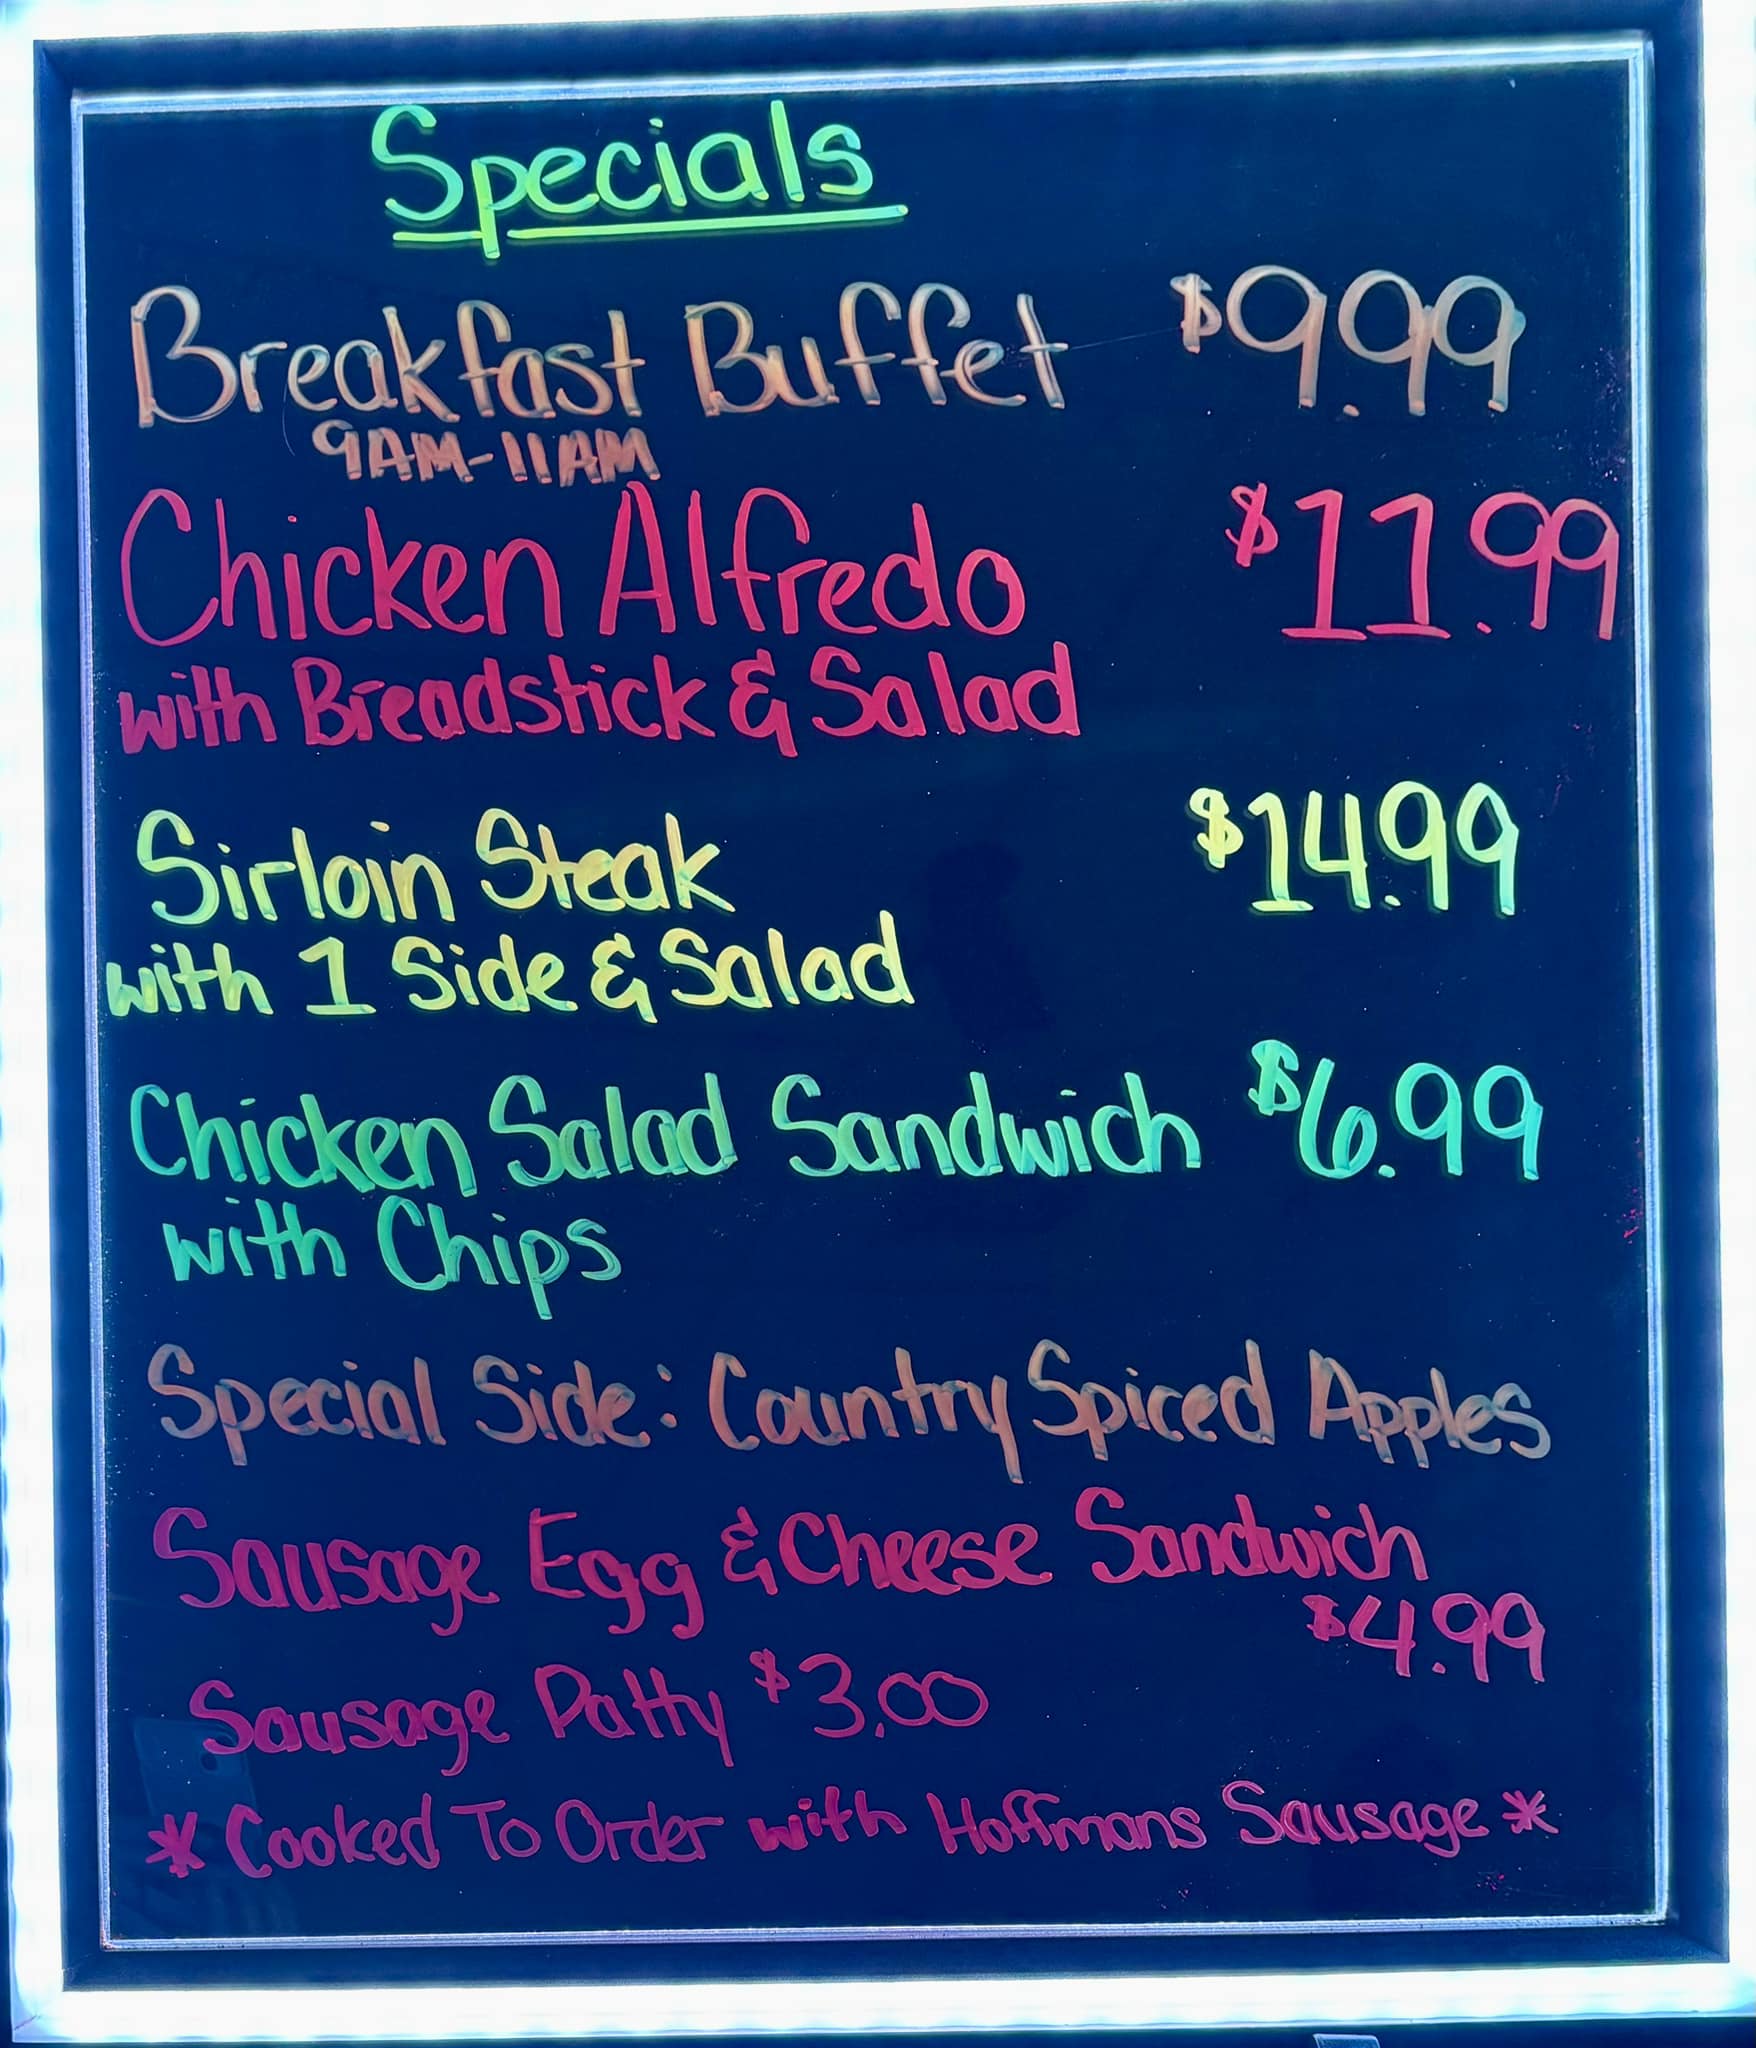 Specials
Breakfast Buffet $9.99
9AM-11AM
Chicken Alfredo $11.99
with Breadstick & Salad
Sirloin Steak $14.99
with 1 Side & Salad
Chicken Salad Sandwich $6.99
with Chips
Special Side: Country Spiced Apples
Sausage Egg & Cheese Sandwich
$4.99
Sausage Patty $3.00
* Cooked To Order with Hoffmans Sausage *